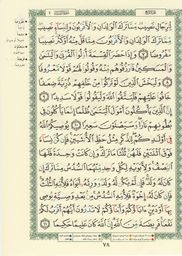 لِّلرِّجَالِ نَصِيبٌ مِّمَّا تَرَكَ ٱلْوَٰلِدَانِ وَٱلْأَقْرَبُونَ وَلِلنِّسَآءِ نَصِيبٌ
مِّمَّا تَرَكَ ٱلْوَٰلِدَانِ وَٱلْأَقْرَبُونَ مِمَّا قَلَّ مِنْهُ أَوْ كَثُرَ نَصِيبًا
مَّفْرُوضًا ٧ وَإِذَا حَضَرَ ٱلْقِسْمَةَ أُو۟لُوا۟ ٱلْقُرْبَىٰ وَٱلْيَتَٰمَىٰ
وَٱلْمَسَٰكِينُ فَٱرْزُقُوهُم مِّنْهُ وَقُولُوا۟ لَهُمْ قَوْلًا مَّعْرُوفًا
٨ وَلْيَخْشَ ٱلَّذِينَ لَوْ تَرَكُوا۟ مِنْ خَلْفِهِمْ ذُرِّيَّةً ضِعَٰفًا
خَافُوا۟ عَلَيْهِمْ فَلْيَتَّقُوا۟ ٱللَّهَ وَلْيَقُولُوا۟ قَوْلًا سَدِيدًا ٩
إِنَّ ٱلَّذِينَ يَأْكُلُونَ أَمْوَٰلَ ٱلْيَتَٰمَىٰ ظُلْمًا إِنَّمَا يَأْكُلُونَ فِى
بُطُونِهِمْ نَارًا وَسَيَصْلَوْنَ سَعِيرًا ١٠ يُوصِيكُمُ ٱللَّهُ
فِىٓ أَوْلَٰدِكُمْ لِلذَّكَرِ مِثْلُ حَظِّ ٱلْأُنثَيَيْنِ فَإِن كُنَّ نِسَآءً
فَوْقَ ٱثْنَتَيْنِ فَلَهُنَّ ثُلُثَا مَا تَرَكَ وَإِن كَانَتْ وَٰحِدَةً فَلَهَا
ٱلنِّصْفُ وَلِأَبَوَيْهِ لِكُلِّ وَٰحِدٍ مِّنْهُمَا ٱلسُّدُسُ مِمَّا تَرَكَ إِن
كَانَ لَهُۥ وَلَدٌ فَإِن لَّمْ يَكُن لَّهُۥ وَلَدٌ وَوَرِثَهُۥٓ أَبَوَاهُ فَلِأُمِّهِ ٱلثُّلُثُ
فَإِن كَانَ لَهُۥٓ إِخْوَةٌ فَلِأُمِّهِ ٱلسُّدُسُ مِنۢ بَعْدِ وَصِيَّةٍ يُوصِى
بِهَآ أَوْ دَيْنٍ ءَابَآؤُكُمْ وَأَبْنَآؤُكُمْ لَا تَدْرُونَ أَيُّهُمْ أَقْرَبُ لَكُمْ
نَفْعًا فَرِيضَةً مِّنَ ٱللَّهِ إِنَّ ٱللَّهَ كَانَ عَلِيمًا حَكِيمًا ١١
٧٨